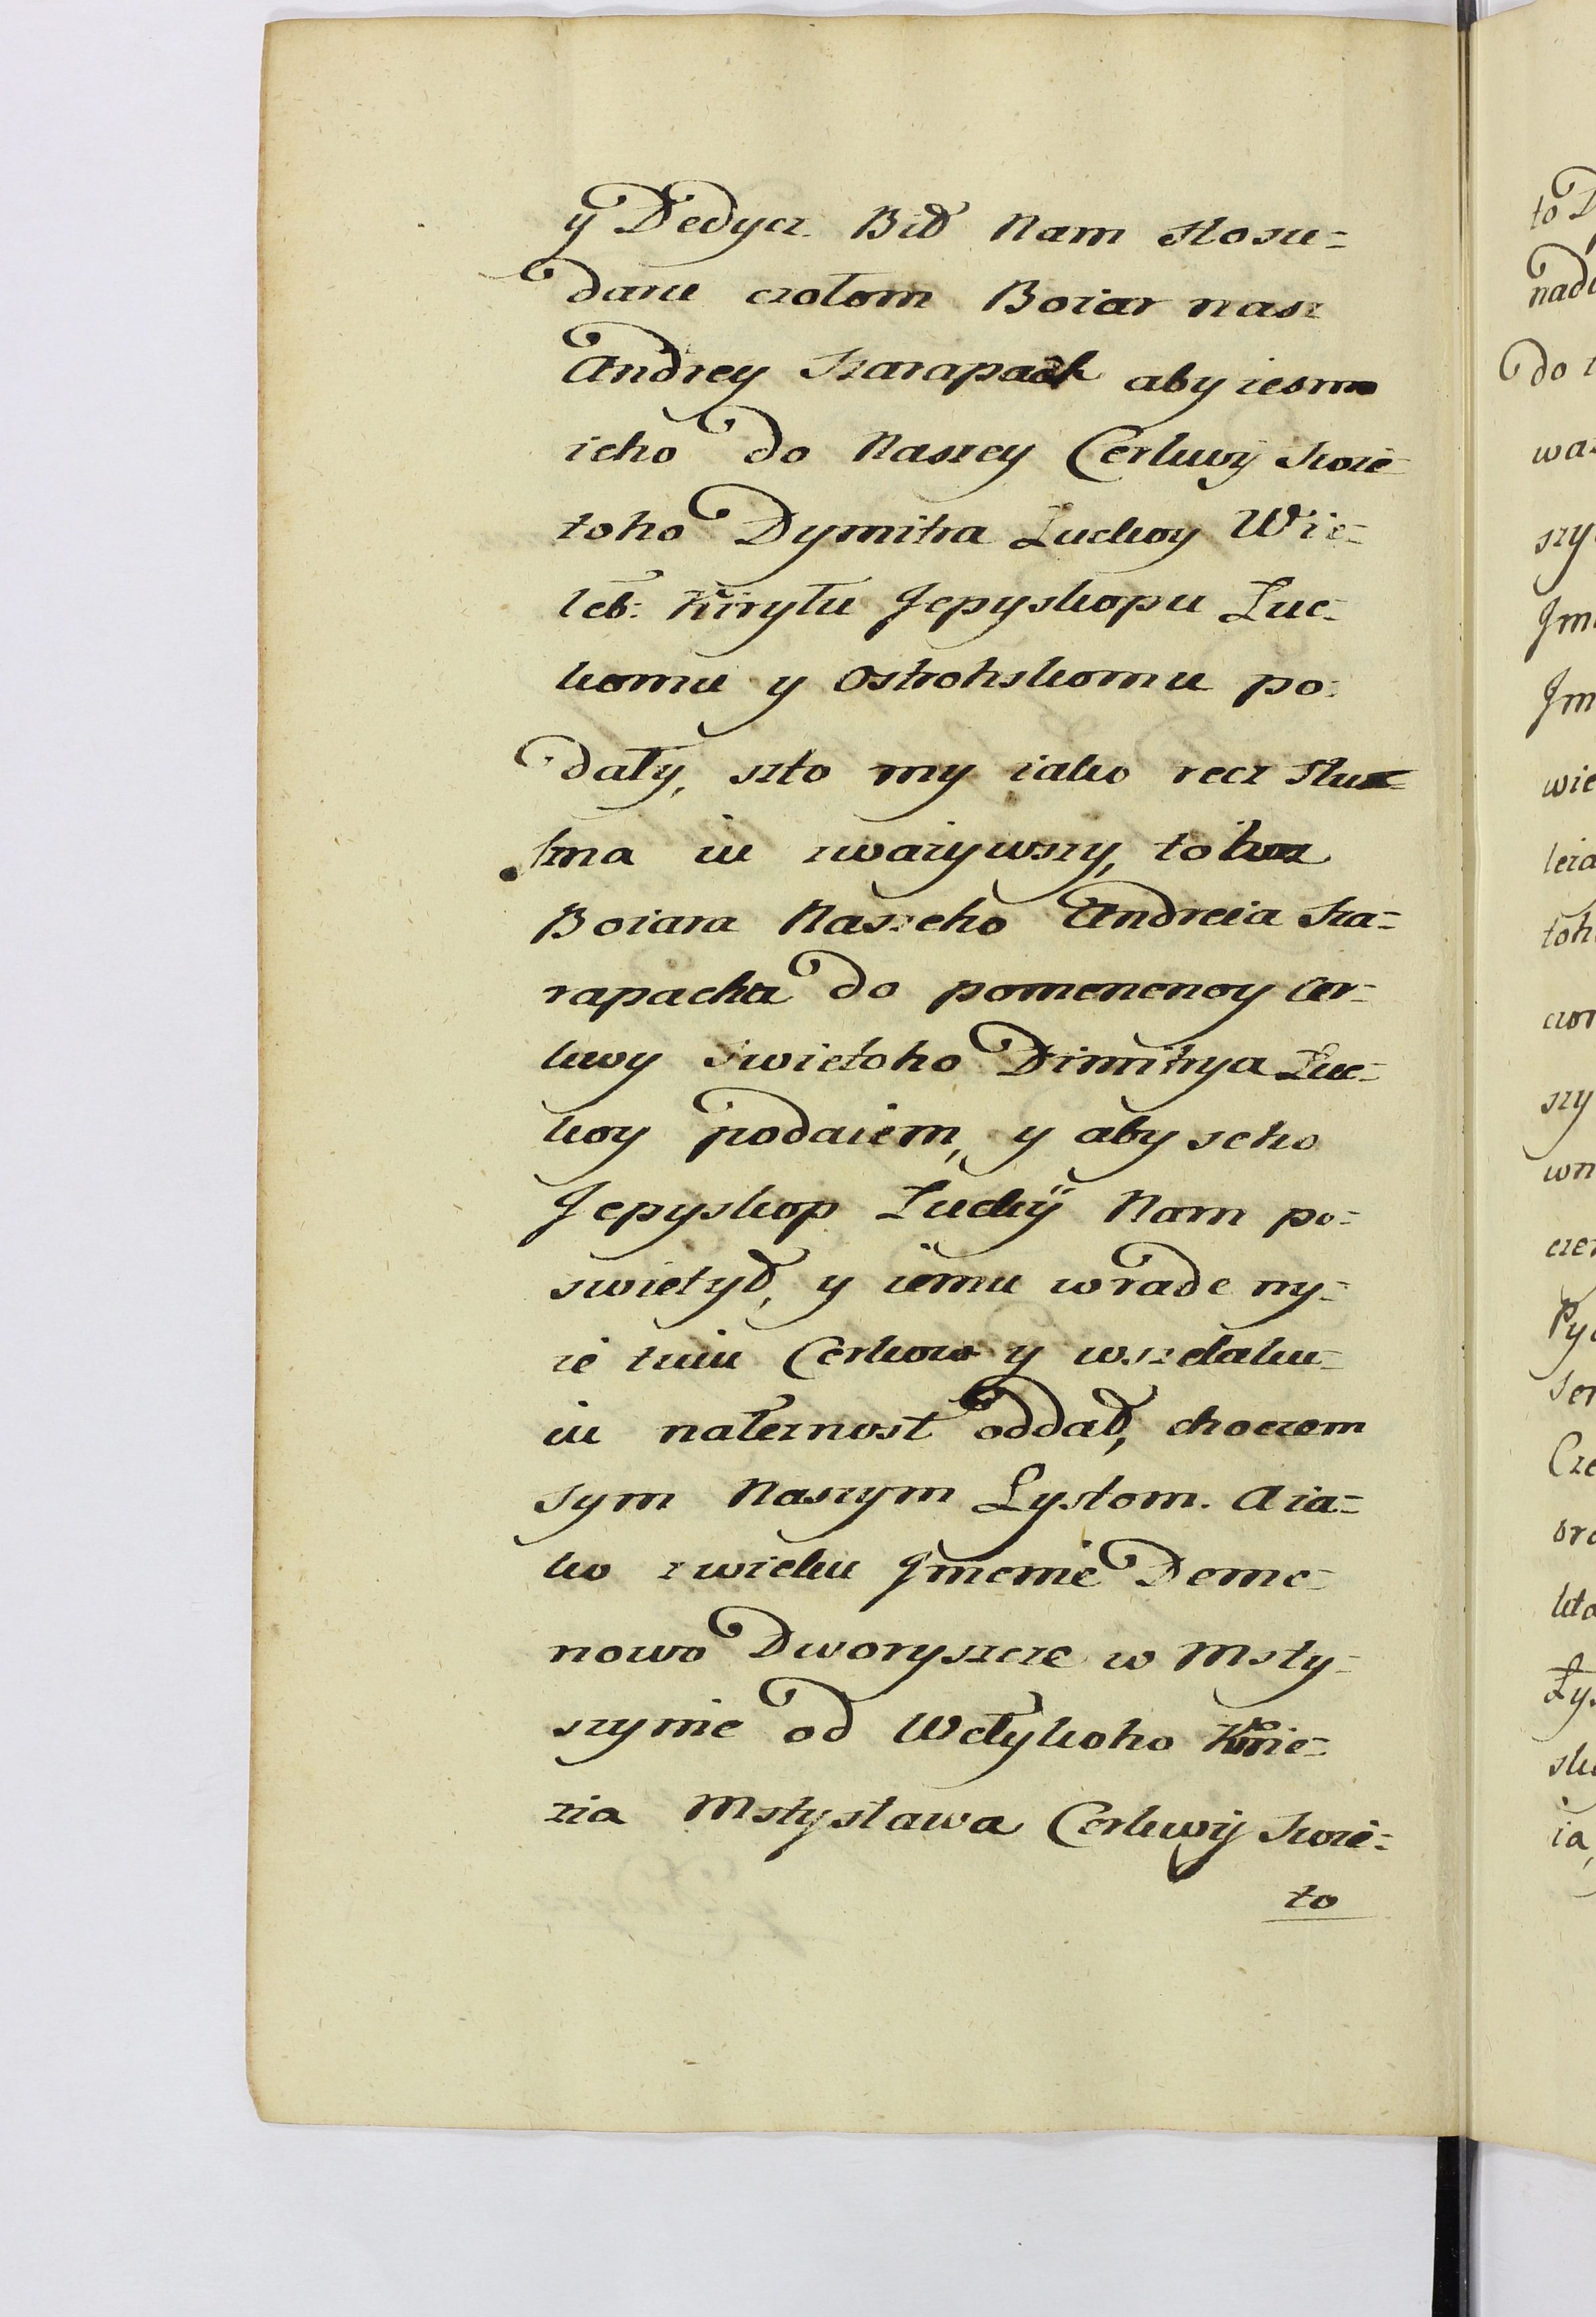 ÿ Dedycz. Bił Nam Hosu=
daru czołom Boiar nasz
Andrey Szarapach aby iesmo
icho do Naszey Cerkwÿ Swie
toho Dymitra Luckoy Wie=
leb: Kiryłu Jepyskopu Luc=
komu y Ostrohskomu po=
dały, szto my iako recz Słusz=
zna iu zwazywszy, toho
Boiara Naszeho Andreia Sza=
rapacha do pomenenoy Cer=
kwy Swietoho Dimitrya Luc=
koy podaiem, y aby seho
Jepyskop Luckÿ Nam po=
swietył, y iemu wrade ny=
ie tuiu Cerkow y wszelaku=
iu nałeznost oddał, choczem
sym Naszym Lystom. A ia=
ko z wieku Jmenie Deme=
nowo Dworyszcze w Msty=
szynie od Wełykoho Knie=
zia Mstysława Cerkwÿ Swie=
to
to D
nad
do
wa
szy
Jm
Jm
wie
leia
toh
czor
szy
wn
cze
Py
ser
Cze
oro
kto
Łys
sk
ia,